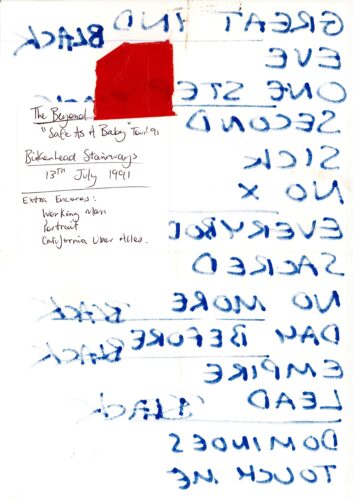 GREAT IND BLACK
EVE
ONE STE
SECOND
SICK
NO X
SACRED
NO MORE BLACK
DAY BEFORE BLACK
EMPIRE
LEAD BLACK
DOMINOES
TOUCH ME
The Beyond
"Safe As A Baby" Tour '91
Birkenhead Stairways
13TH July 1991
Extra Encores:
Working Man
Portrait
California Uber Alles.